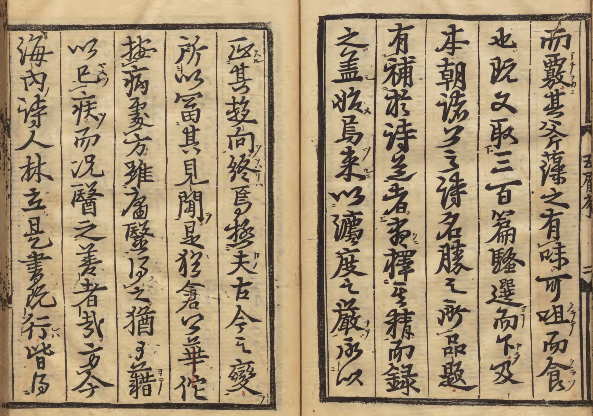 而覈其斧藻之有味可咀而食
也既又取三百篇騷選而下及
本朝諸公之詩名勝之所品題
有補於詩道者芟擇至精而錄
之蓋昉焉來以讜度之嚴永以
正其趍向終焉極夫古今之變
所以富其見聞是猶倉公華佗
按病處方雖庸醫得之猶可藉
以已疾而況醫之善者哉方今
海內詩人林立是書既行皆得